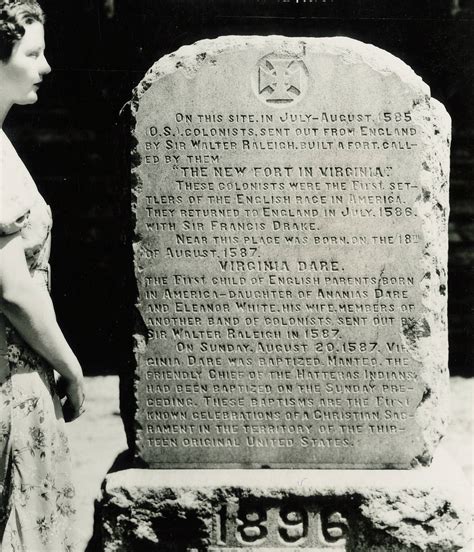 ON THIS SITE, IN JULY-AUGUST, 1585
(O.S.), COLONISTS, SENT OUT FROM ENGLAND
BY SIR WALTER RALEIGH, BUILT A FORT, CALL-
ED BY THEM
"THE NEW FORT IN VIRGINIA."
THESE COLONISTS WERE THE FIRST SET-
TLERS OF THE ENGLISH RACE IN AMERICA.
THEY RETURNED TO ENGLAND IN JULY, 1586,
WITH SIR FRANCIS DRAKE.
NEAR THIS PLACE WAS BORN, ON THE 18TH
OF AUGUST, 1587,
VIRGINIA DARE,
THE FIRST CHILD OF ENGLISH PARENTS BORN
IN AMERICA—DAUGHTER OF ANANIAS DARE
AND ELEANOR WHITE, HIS WIFE, MEMBERS OF
ANOTHER BAND OF COLONISTS, SENT OUT BY
SIR WALTER RALEIGH IN 1587.
ON SUNDAY, AUGUST 20, 1587, VIR-
GINIA DARE WAS BAPTIZED. MANTEO, THE
FRIENDLY CHIEF OF THE HATTERAS INDIANS,
HAD BEEN BAPTIZED ON THE SUNDAY PRE-
CEDING. THESE BAPTISMS ARE THE FIRST
KNOWN CELEBRATIONS OF A CHRISTIAN SAC-
RAMENT IN THE TERRITORY OF THE THIR-
TEEN ORIGINAL UNITED STATES.
1896